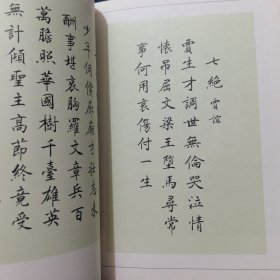 七絕 賈誼
賈生才調世無倫哭泣情
懷弔屈文梁王墮馬尋常
事何用哀傷付一生
少年倜儻廊廟才壯志未
酬事堪哀胸羅文章兵百
萬膽照華國樹千臺雄英
無計傾聖主高節終竟受